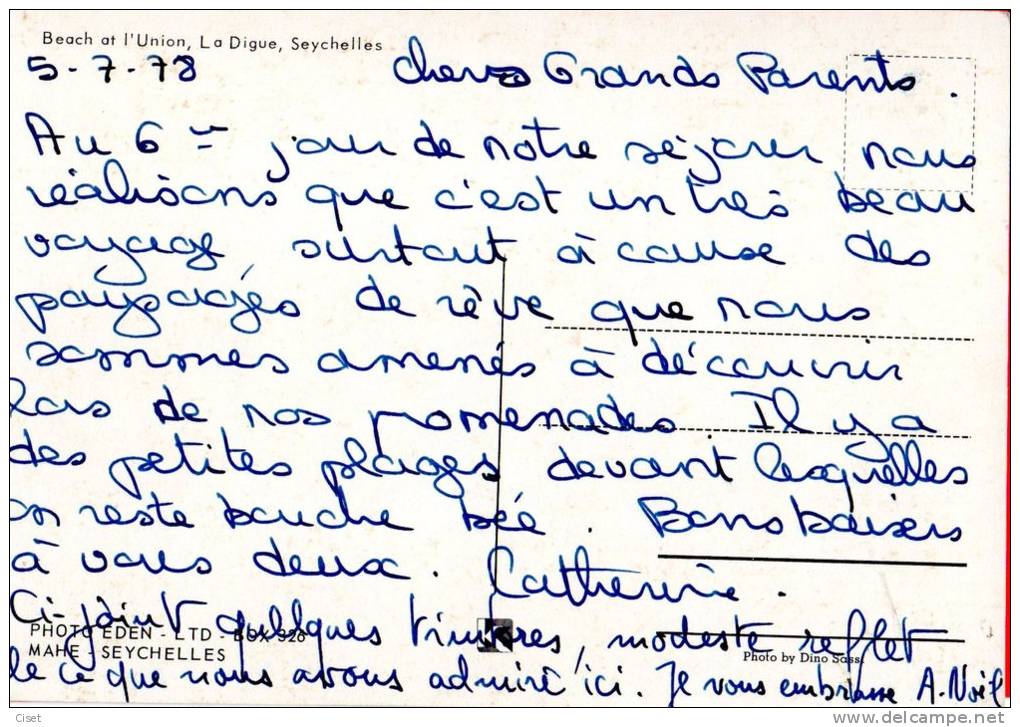 Beach at l'Union, La Digue, Seychelles
5-7-78 Chers Grands Parents.
Au 6e jour de notre séjour nous
réalisons que c'est un très beau
voyage surtout à cause des
paysages de rêve que nous
sommes amenés à découvrir
lors de nos promenades. Il y a
des petites plages devant lesquelles
on reste bouche bée. Bons baisers
à vous deux. Catherine.
Ci-joint quelques timbres, modeste reflet
de ce que nous avons admiré ici. Je vous embrasse A-Noël
PHOTO EDEN - LTD - BOX 326
MAHE - SEYCHELLES
Photo by Dino Sassi
Ciset
www.delcampe.net